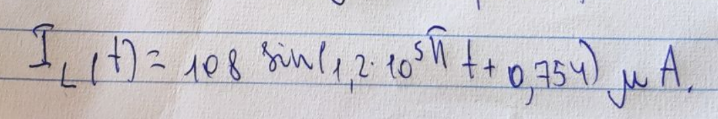 I_L(t) = 108 sin(1,2·10⁵π t + 0,754) μA.